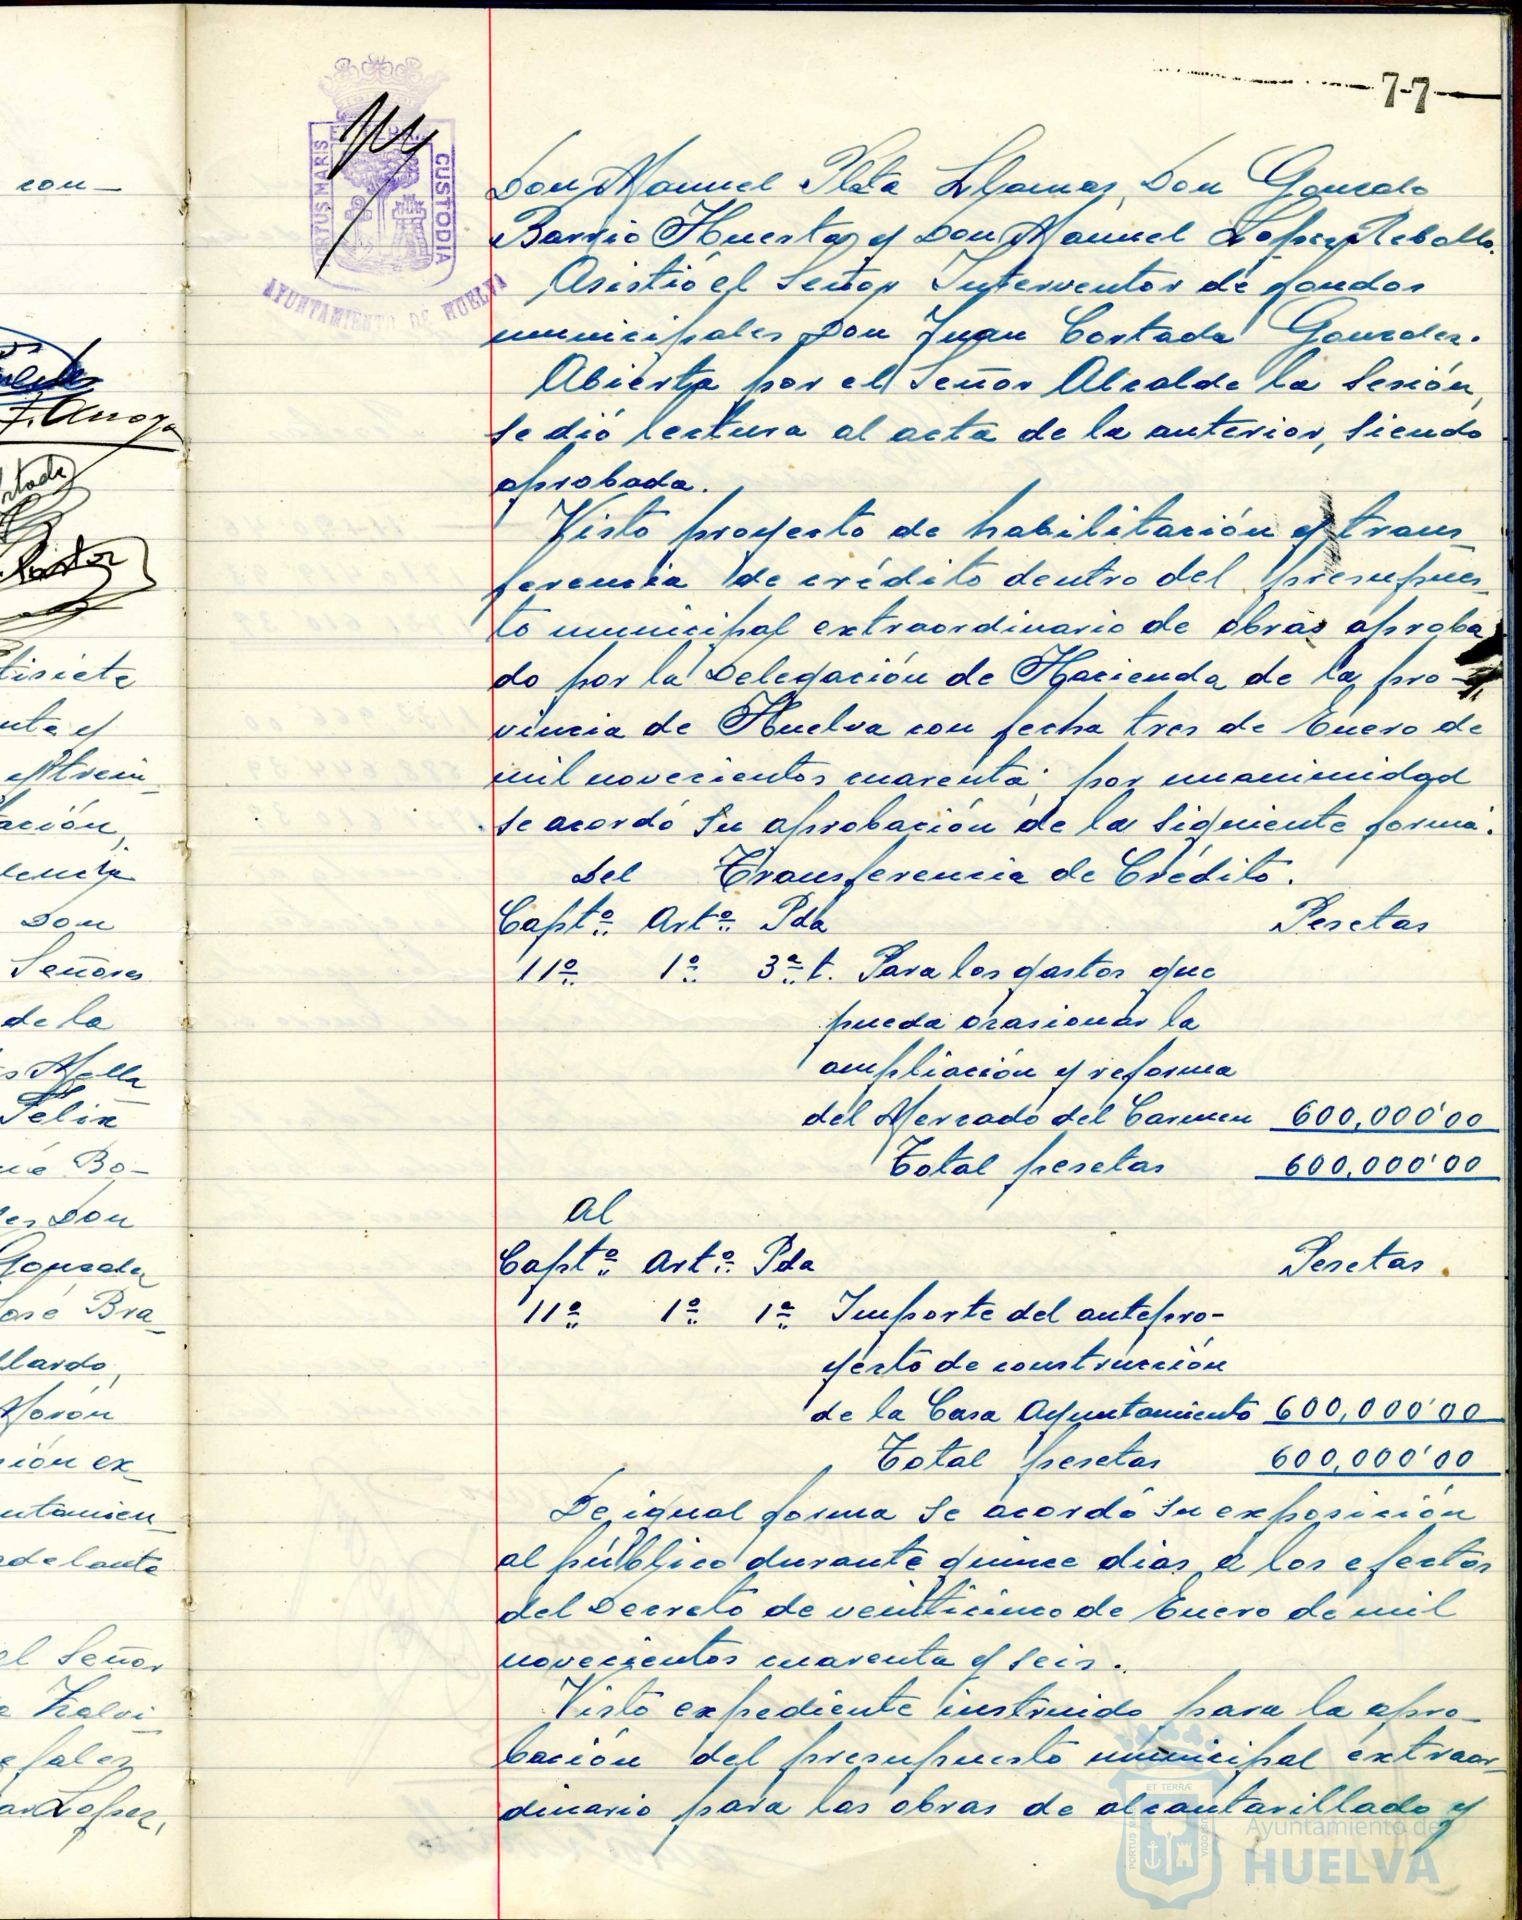 77
PORTUS MARIS
ET TERRAE
CUSTODIA
AYUNTAMIENTO DE HUELVA
Don Manuel Plata Llamas, Don Gonzalo
Barrio Huerta y Don Manuel Lopez Rebollo.
Asistió el Señor Interventor de fondos
municipales Don Juan Cortada Gonzalez.
Abierta por el Señor Alcalde la Sesión,
se dió lectura al acta de la anterior, siendo
aprobada.
Visto proyecto de habilitación y trans-
ferencia de crédito dentro del presupues-
to municipal extraordinario de obras aproba
do por la Delegación de Hacienda de la pro-
vincia de Huelva con fecha tres de Enero de
mil novecientos cuarenta; por unanimidad
se acordó su aprobación de la siguiente forma:
Del Transferencia de Crédito.
Captº Artº Pda Pesetas
11º 1º 3ª t. Para los gastos que
pueda ocasionar la
ampliación y reforma
del Mercado del Carmen 600,000'00
Total pesetas 600,000'00
Al
Captº Artº Pda Pesetas.
11º 1º 1ª Importe del antepro-
yecto de construcción
de la Casa Ayuntamiento 600,000'00
Total pesetas 600,000'00
De igual forma se acordó su exposición
al público durante quince dias a los efectos
del Decreto de veinticinco de Enero de mil
novecientos cuarenta y seis.
Visto expediente instruido para la apro-
bación del presupuesto municipal extraor-
dinario para las obras de alcantarillado y
Ayuntamiento de
HUELVA
con-
F. Arroyo
tisiete
nta y
ación,
lencia
Don
Señores
de la
Felix
Bo-
Don
Gonzalez
José Bra-
llardo,
Morón
sión ex-
untamien-
adelante
el Señor
Lopez,